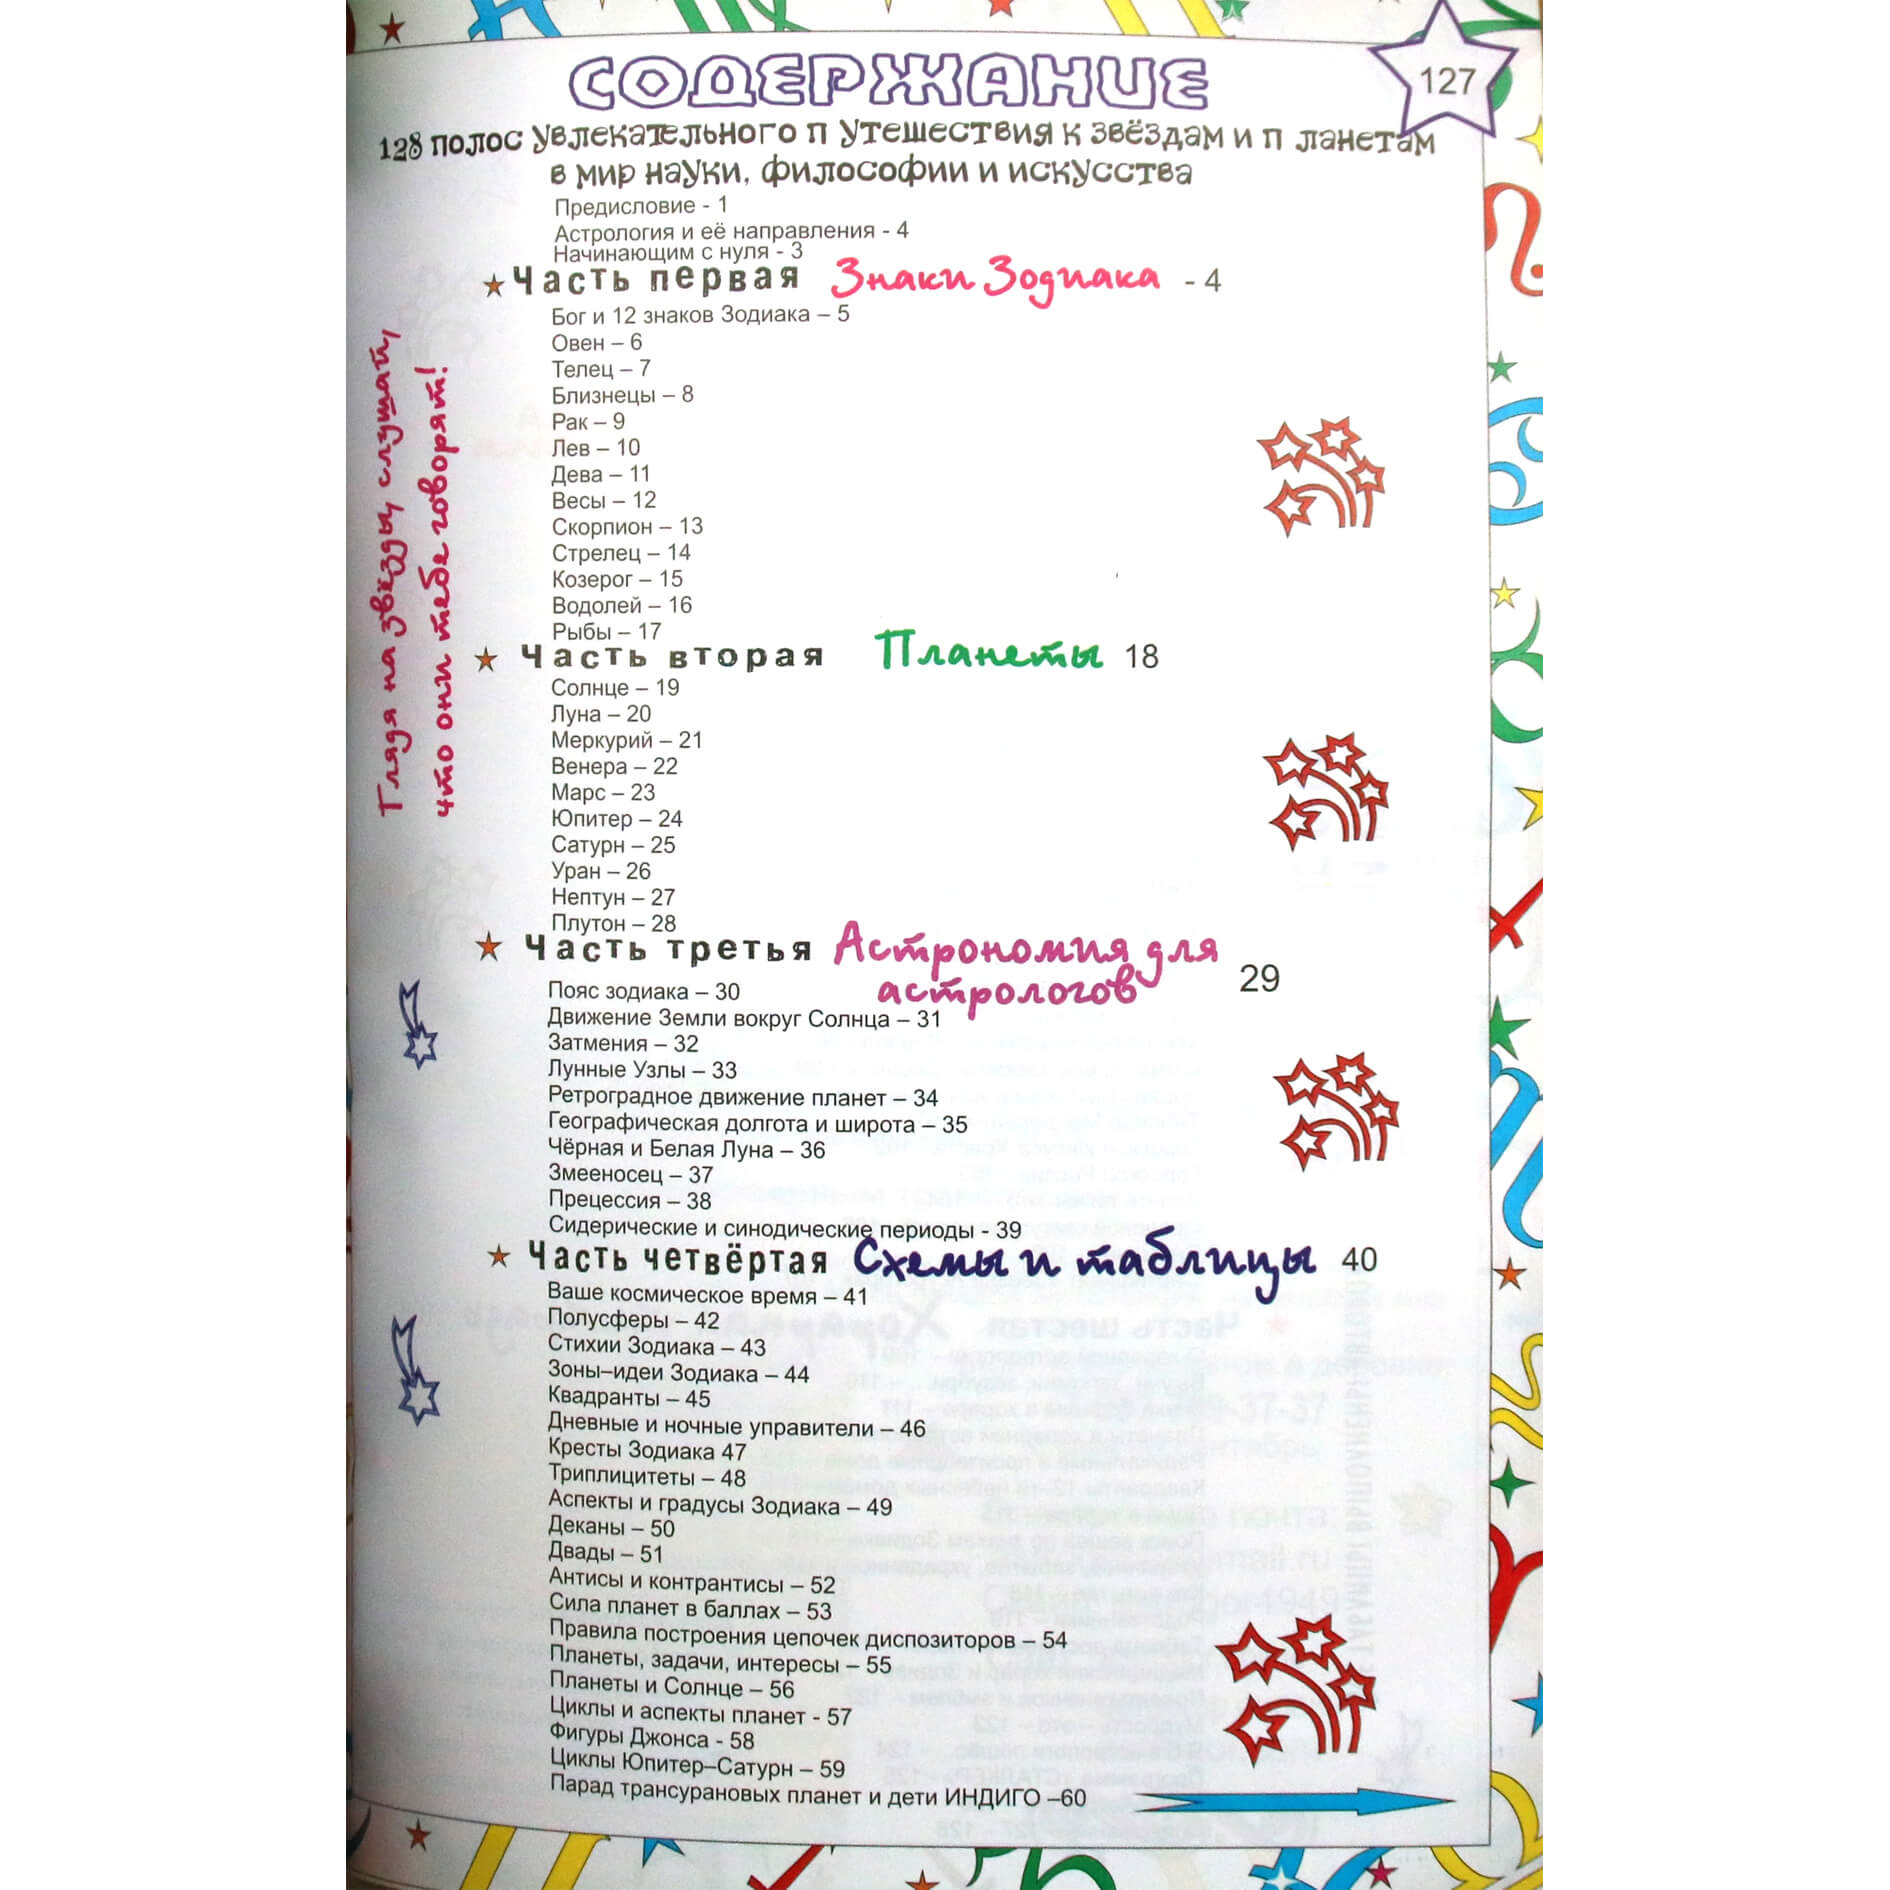 СОДЕРЖАНИЕ
127
128 полос увлекательного п утешествия к звёздам и п ланетам
в мир науки, философии и искусства
Предисловие - 1
Астрология и её направления - 4
Начинающим с нуля - 3
Часть первая Знаки Зодиака - 4
Бог и 12 знаков Зодиака – 5
Овен – 6
Телец – 7
Близнецы – 8
Рак – 9
Лев – 10
Дева – 11
Весы – 12
Скорпион – 13
Стрелец – 14
Козерог – 15
Водолей – 16
Рыбы – 17
Глядя на звёзды, слушай,
что они тебе говорят!
Часть вторая Планеты 18
Солнце – 19
Луна – 20
Меркурий – 21
Венера – 22
Марс – 23
Юпитер – 24
Сатурн – 25
Уран – 26
Нептун – 27
Плутон – 28
Часть третья Астрономия для
астрологов 29
Пояс зодиака – 30
Движение Земли вокруг Солнца – 31
Затмения – 32
Лунные Узлы – 33
Ретроградное движение планет – 34
Географическая долгота и широта – 35
Чёрная и Белая Луна – 36
Змееносец – 37
Прецессия – 38
Сидерические и синодические периоды - 39
Часть четвёртая Схемы и таблицы 40
Ваше космическое время – 41
Полусферы – 42
Стихии Зодиака – 43
Зоны–идеи Зодиака – 44
Квадранты – 45
Дневные и ночные управители – 46
Кресты Зодиака 47
Триплицитеты – 48
Аспекты и градусы Зодиака – 49
Деканы – 50
Двады – 51
Антисы и контрантисы – 52
Сила планет в баллах – 53
Правила построения цепочек диспозиторов – 54
Планеты, задачи, интересы – 55
Планеты и Солнце – 56
Циклы и аспекты планет - 57
Фигуры Джонса - 58
Циклы Юпитер–Сатурн – 59
Парад трансурановых планет и дети ИНДИГО –60